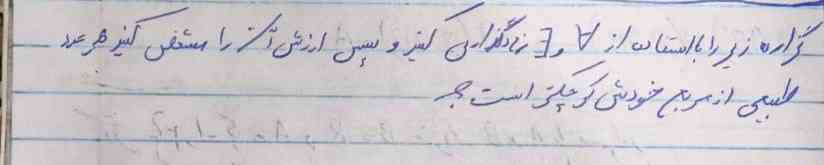 گزاره زیر را با استفاده از ∀ و ∃ نمادگذاری کنید و سپس ارزش آن را مشخص کنید هر عدد
طبیعی از مربع خودش کوچکتر است